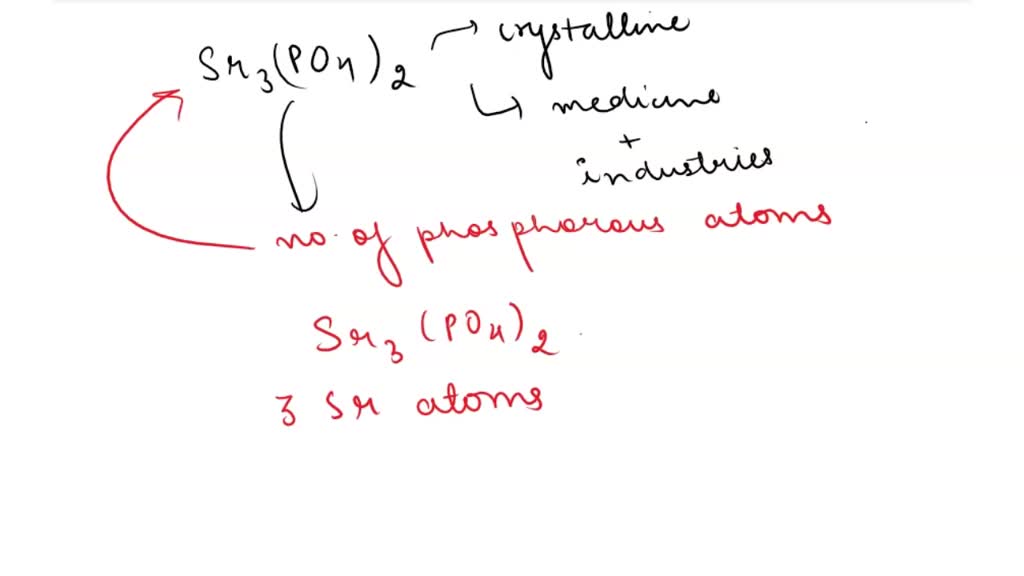 Sr₃(PO₄)₂ → crystalline
↳ medicine
+
industries
no. of phosphorous atoms
Sr₃(PO₄)₂
3 Sr atoms